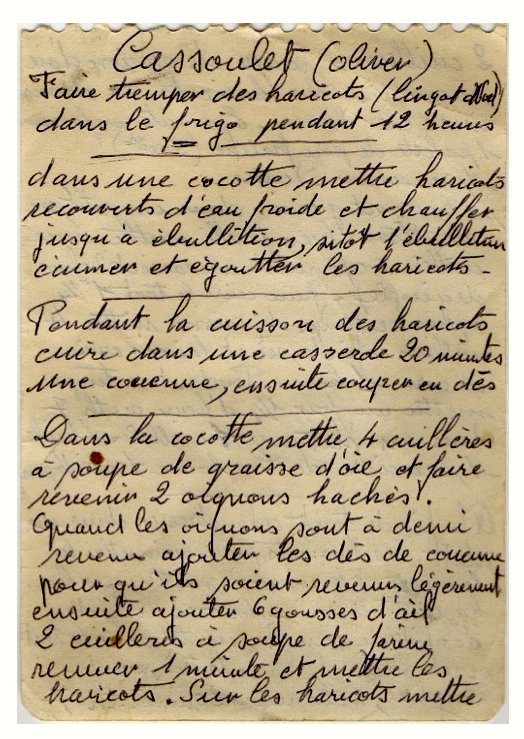 Cassoulet (oliver)
Faire tremper des haricots (lingot
dans le frigo pendant 12 heures
dans une cocotte mettre haricots
recouverts d'eau froide et chauffer
jusqu'à ébullition, sitôt l'ébullition
écumer et égoutter les haricots -
Pendant la cuisson des haricots
cuire dans une casserole 20 minutes
une couenne, ensuite couper en dés
Dans la cocotte mettre 4 cuillères
à soupe de graisse d'oie et faire
revenir 2 oignons hachés.
Quand les oignons sont à demi
revenu ajouter les dés de couenne
pour qu'ils soient revenus légèrement
ensuite ajouter 6 gousses d'ail
2 cuillères à soupe de farine
remuer 1 minute et mettre les
haricots. Sur les haricots mettre